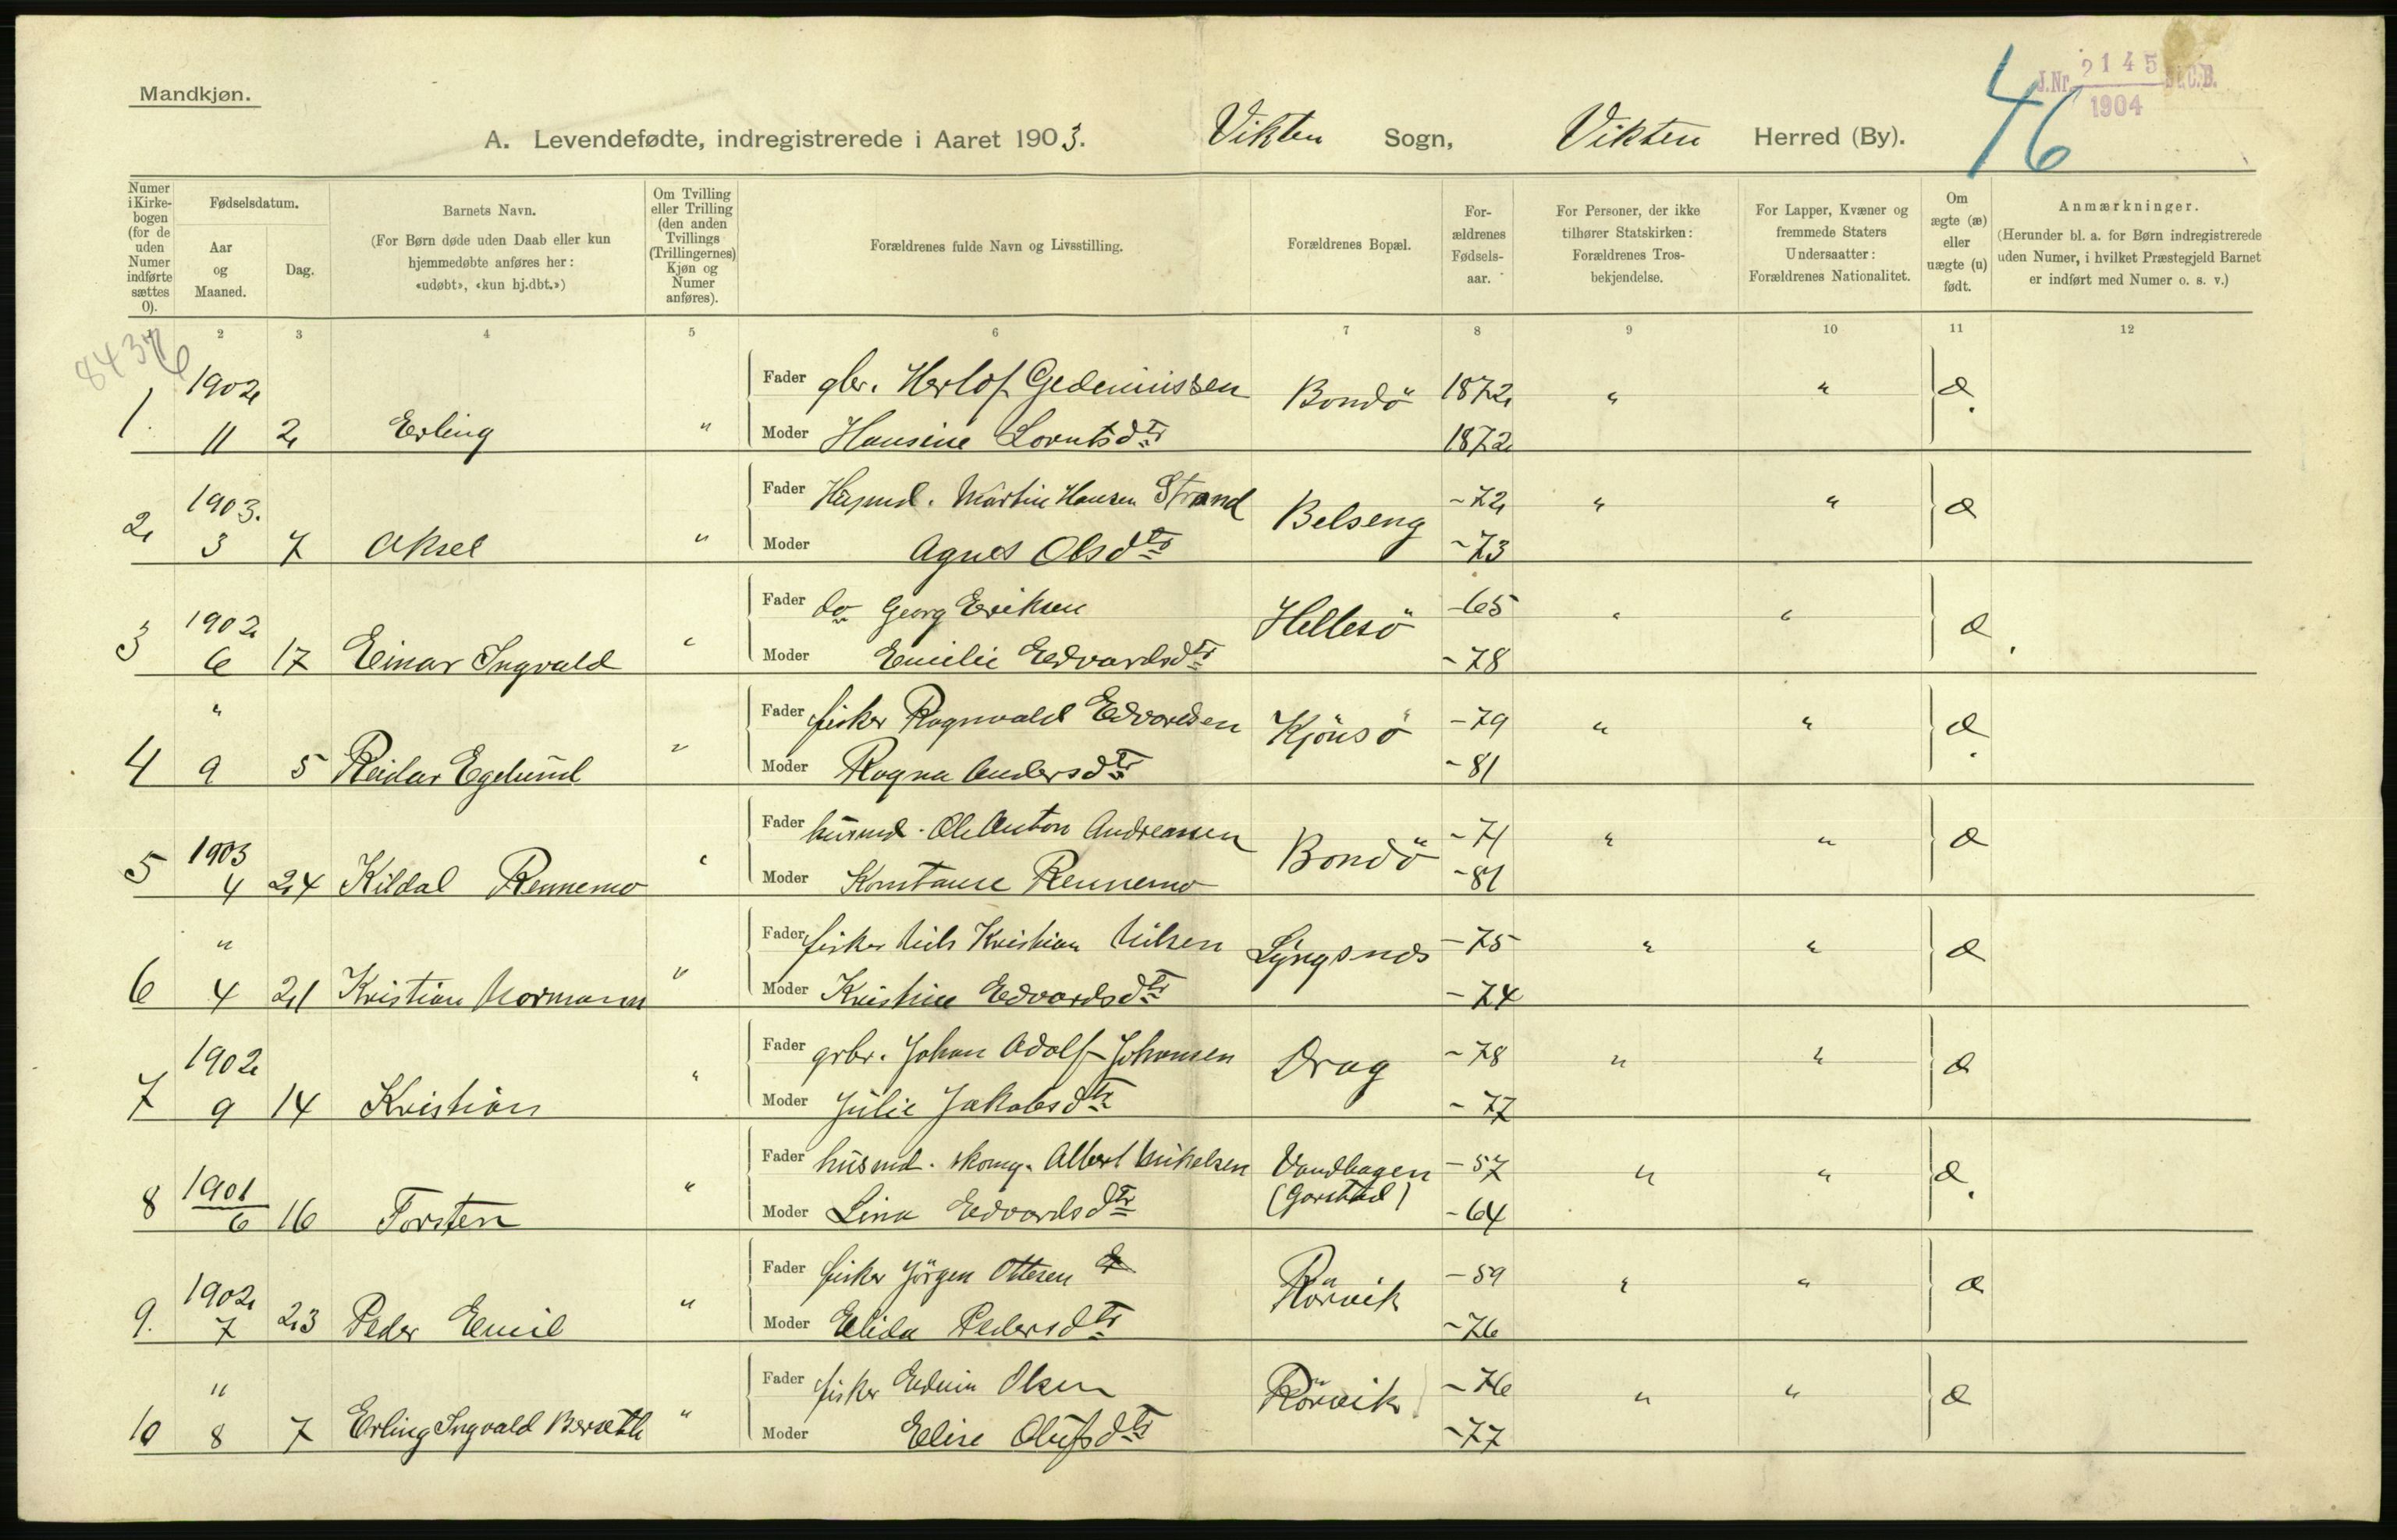 Mandkjøn.
J.Nr. 2145 St.C.B.
1904
46
A. Levendefødte, indregistrerede i Aaret 1903. Vikten Sogn, Vikten Herred (By).
Numer i Kirkebogen (for de uden Numer indførte sættes 0).
Fødselsdatum.
Aar og Maaned.
Dag.
Barnets Navn.
(For Børn døde uden Daab eller kun hjemmedøbte anføres her: «udøbt», «kun hj.dbt.»)
Om Tvilling eller Trilling (den anden Tvillings (Trillingernes) Kjøn og Numer anføres).
Forældrenes fulde Navn og Livsstilling.
Forældrenes Bopæl.
Forældrenes Fødselsaar.
For Personer, der ikke tilhører Statskirken: Forældrenes Trosbekjendelse.
For Lapper, Kvæner og fremmede Staters Undersaatter: Forældrenes Nationalitet.
Om ægte (æ) eller uægte (u) født.
Anmærkninger.
(Herunder bl. a. for Børn indregistrerede uden Numer, i hvilket Præstegjeld Barnet er indført med Numer o. s. v.)
1 2 3 4 5 6 7 8 9 10 11 12
1902 Fader gbr. Herlof Gedeminssen Bondö 1872 " " æ
1. 11 2 Erling " Moder Hansine Lorntsdtr 1872
1903. Fader Husmd. Martin Hansen Strand Belseng -72 " " æ
2 3 7 Aksel " Moder Agnes Olsdtr -73
1902 Fader do Georg Eriksen Hellesö -65 " " æ
3 6 17 Einar Ingvald " Moder Emilie Edvardsdtr -78
" Fader fisker Ragnvald Edvardsen Kjönsö -79 " " æ
4 9 5 Reidar Egelund " Moder Ragna Andersdtr -81
1903 Fader husmd. Ole Anton Andreassen Bondö -71 " " æ
5 4 24 Kildal Rennemo " Moder Konstanse Rennemo -81
" Fader fisker Nils Kristian Nilsen Lyngsnes -75 " " æ
6 4 21 Kristian Normann " Moder Kristine Edvardsdtr -74
1902 Fader grbr. Johan Adolf Johansen Drag -78 " " æ
7 9 14 Kristian " Moder Julie Jakobsdtr -77
1901 Fader husmd. skomg. Albert Mikelsen Vandhagen -57 " " æ
8 6 16 Torsten " Moder Lina Edvardsdtr (Garstad) -64
1902 Fader fisker Jörgen Ottesen Rörvik -59 " " æ
9. 7 23 Peder Emil " Moder Elida Pedersdtr -76
" Fader fisker Edvin Olsen Rörvik -76 " " æ
10 8 7 Erling Ingvald Berseth " Moder Elise Olufsdtr -77